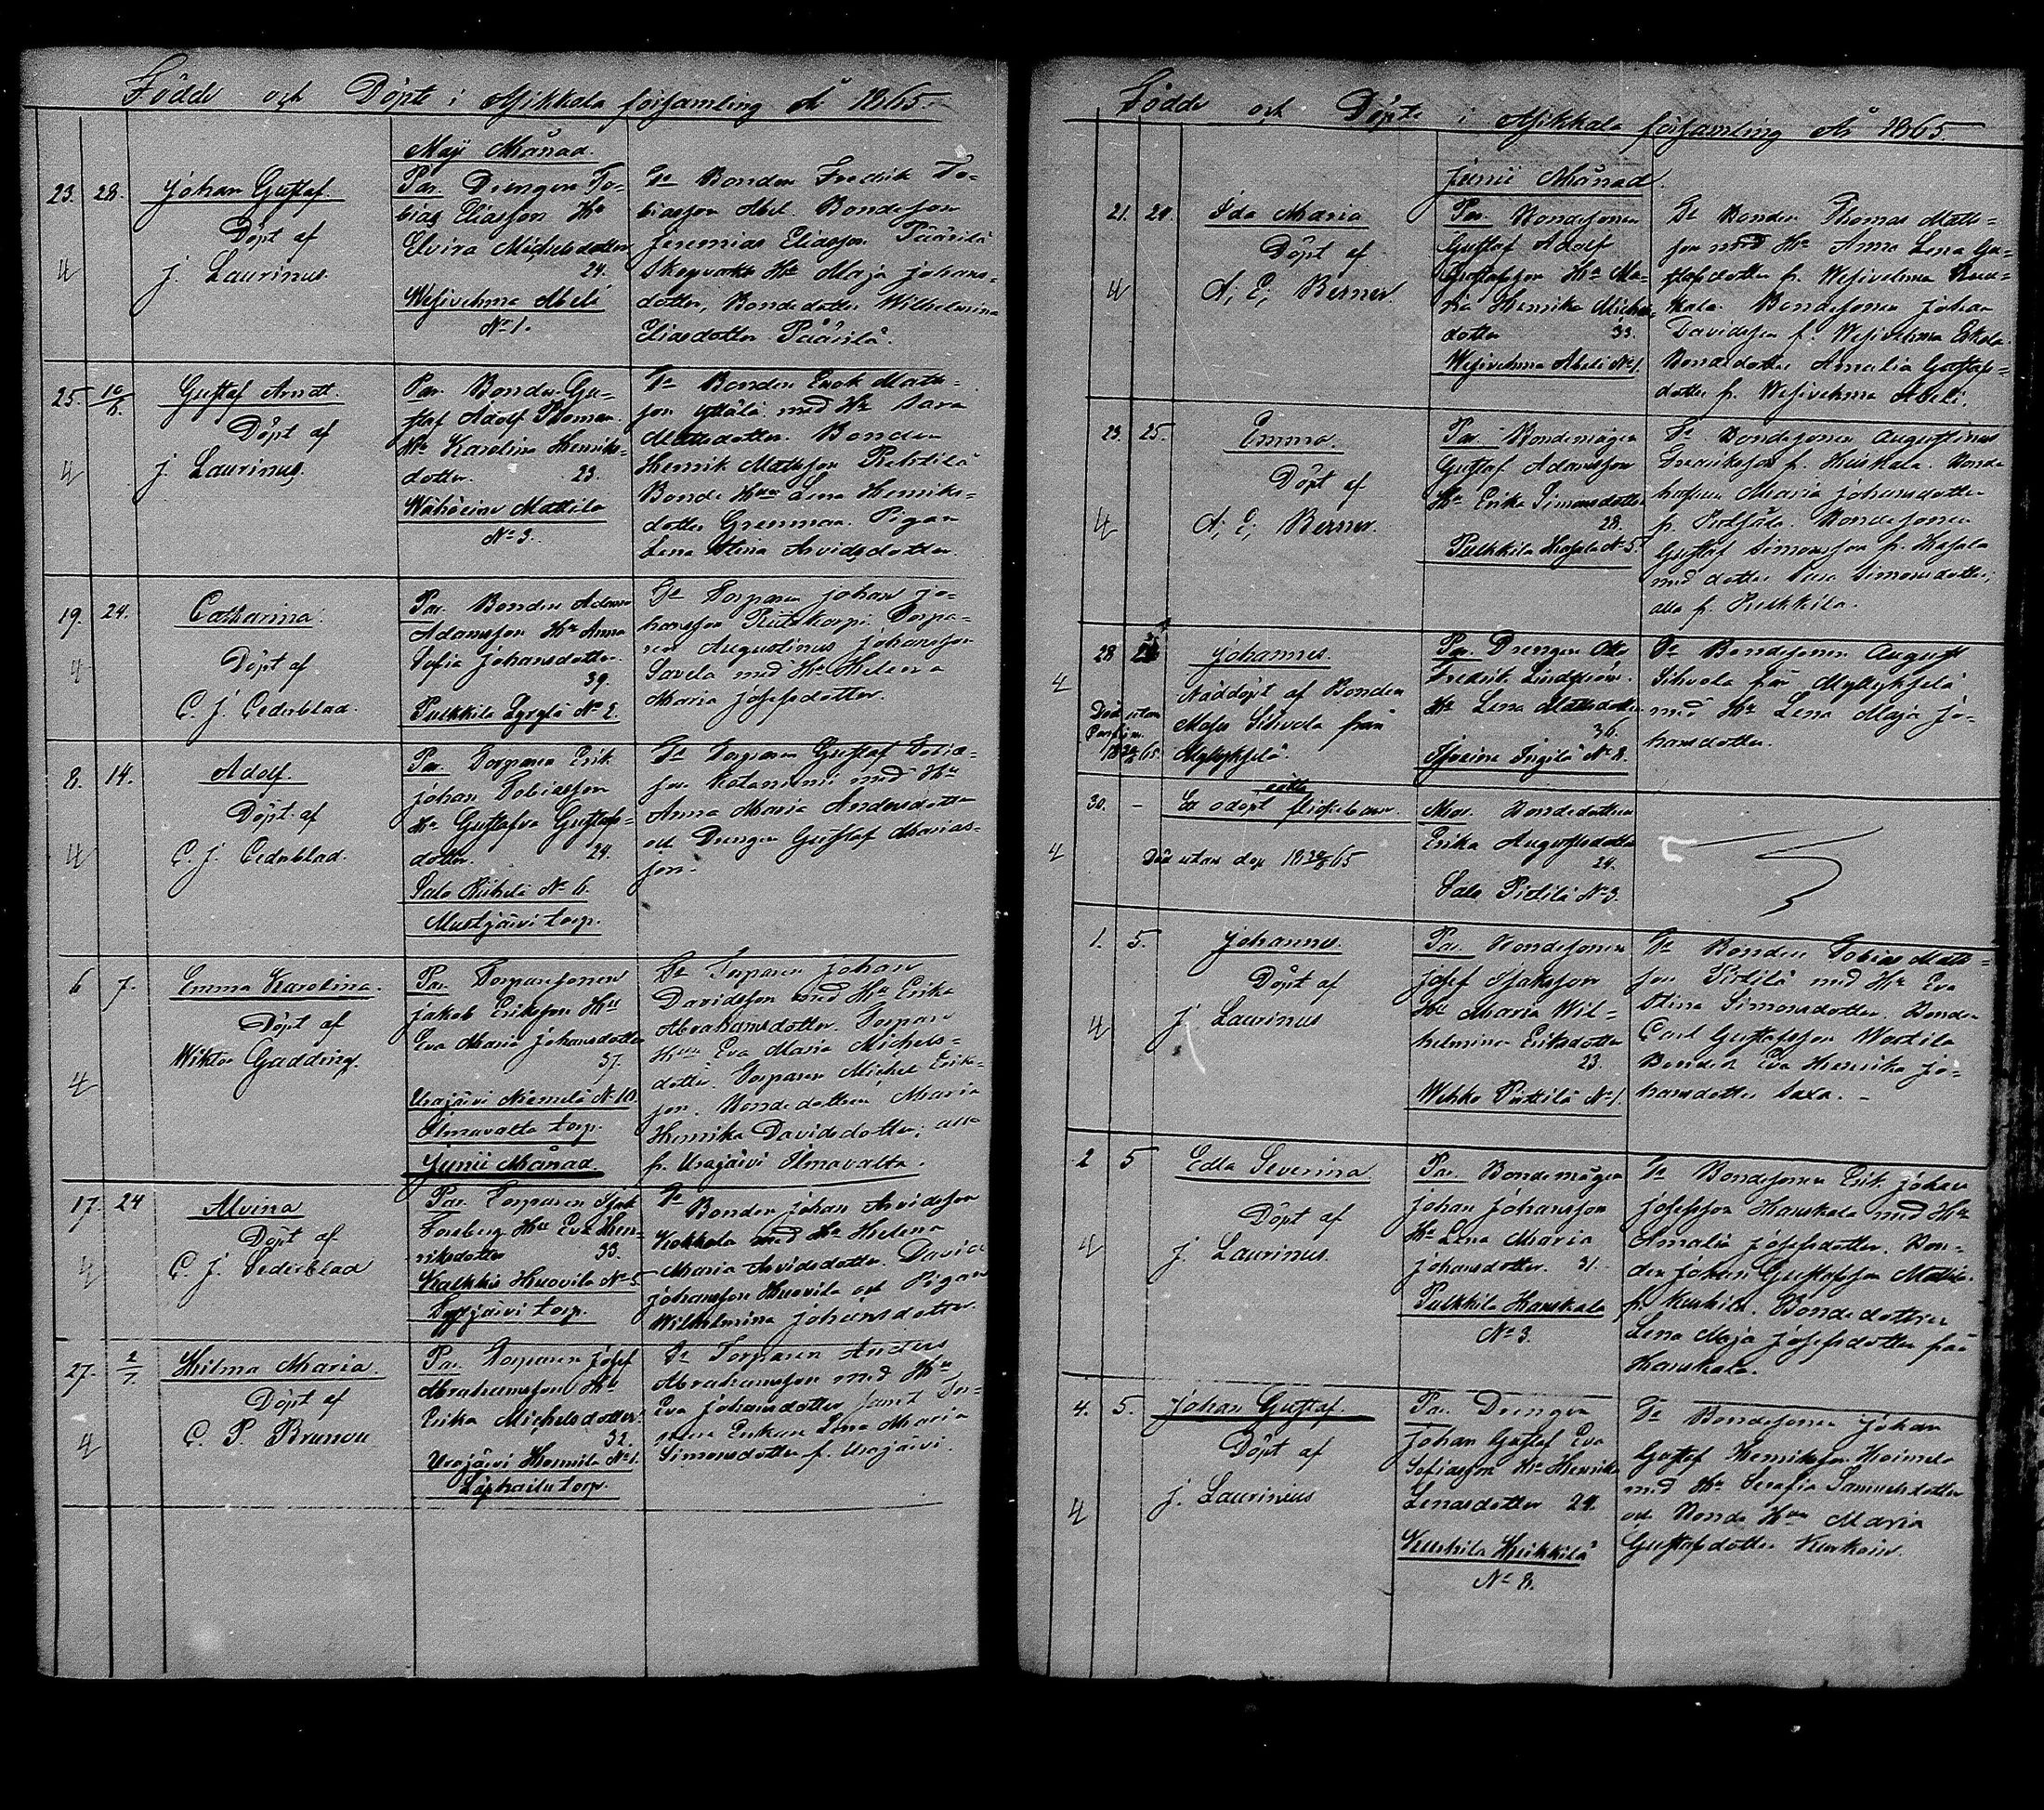 Födde och Döpte i Asikkala församling År 1865.
Maji Månad.
23. 28. Johan Gustaf.
Döpt af
4
J. Laurinus.
Par. Drengen To-
bias Eliasson Hu
Elvira Michelsdotter
24.
Wesivehma Abeli
No 1.
Fr Bonden Fredrik To-
biasson Abel. Bondeson
Jeremias Eliasson Pääsilä
Maja Johans-
dotter, Bondedotter Wilhelmina
Eliasdotter Pääsilä.
25. 10/6. Gustaf Arndt.
Döpt af
4
J. Laurinus.
Par. Bonden Gu-
staf Adolf Thoman.
Hu Karolina Henriks-
dotter. 23.
Wähäeine Mattila
No 3.
Fr Bonden Erik Mats-
son Yttälä med Hu Sara
Mattsdotter. Bonden
Henrik Matsson
Bonde Hun Lena Henriks-
dotter Grenman. Pigan
Lena Stina Arvidsdotter.
19. 24. Catharina.
4
Döpt af
C. J. Cederblad.
Par. Bonden Adam
Adamsson Hu Anna
Sofia Johansdotter.
39.
Pulkkila Zyrylä No 2.
Fr Torparen Johan Jo-
hansson Torpa-
ren Augustinus Johansson
Savela med Hu Helena
Maria Josefsdotter.
8. 14. Adolf.
Döpt af
4
C. J. Cederblad.
Par. Torparen Erik
Johan Tobiasson
Hu Gustafva Gustafs-
dotter. 24.
Salo No 6.
Mustjärvi torp.
Fr Torparen Gustaf
son med Hu
Anna Maria Andersdotter
och Drengen Gustaf Marias-
son.
6 7. Emma Karolina.
Döpt af
Wiktor Gadding.
4
Par. Torparesonen
Jakob Eriksson Hu
Eva Maria Johansdotter
37.
Urajärvi Niemelä No 10
Ilmavalta torp.
Fr Torparen Johan
Davidsson med Hu Erika
Abrahamsdotter. Torpare
Hun Eva Maria Michels-
dotter. Torparen Michel Eriks-
son. Bondedottren Maria
Henrika Davidsdotter; alla
fr. Urajärvi Ilmavalta.
Junii Månad.
17. 24 Alvina
Döpt af
4
C. J. Cederblad
Par. Torparen Isak
Forsberg Hu Eva Hen-
riksdotter 33.
Kalkkis Huovila No 5
torp.
Fr Bonden Johan Arvidsson
Kokkola med Hu Helena
Maria Arvidsdotter. David
Johansson Huovila och Pigan
Wilhelmina Johansdotter.
27. 2/7. Hilma Maria.
Döpt af
4
C. P. Brunou
Par. Torparen Josef
Abrahamsson Hu
Erika Michelsdotter.
32.
Urajärvi Hermila No 1.
torp.
Fr Torparen Anders
Abrahamsson med Hu
Eva Johansdotter samt Tor-
pare Enkan Lena Maria
Simonsdotter f. Urajärvi.
Födde och Döpte i Asikkala församling År 1865.
Junii Månad.
21. 24. Ida Maria
Döpt af
4
A; E; Berner.
Par. Bondesonen
Gustaf Adolf
Gustafsson Hu Ma-
ria Henrika Michels-
dotter 33.
Wesivehma Abeli No 1.
Fr Bonden Thomas Matts-
son med Hu Anna Lena Gu-
stafsdotter fr. Wesivehma
Bondesonen Johan
Davidsson f. Wesivehma Eskola.
Bondedotter Amalia Gustafs-
dotter fr. Wesivehma Abeli.
23. 25. Emma.
Döpt af
4
A; E; Berner.
Par. Bondemågen
Gustaf Adamsson
Hu Erika Simonsdotter
28.
Pulkkila No 5.
Fr Bondesonen Augustinus
Fredriksson fr. Bonde
hustrun Maria Johansdotter
Bondesonen
Gustaf Simonsson fr.
med dotter Simonsdotter;
alla fr. Pulkkila.
28 Johannes.
4
Nöddöpt af Bonden
Sihvola från
Myllykselä.
Par. Drengen Otto
Fredrik Lindström.
Hu Lena Mattsdotter
36.
No 8.
Fr Bondesonen August
Sihvola från Myllykselä
med Hu Lena Maja Jo-
hansdotter.
30. – Ett odöpt äkta flickebarn.
4
Död utan dop 18 30/6 65
Mor. Bondedottren
Erika Augustsdotter
24.
Salo No 3.
1. 5. Johannes.
Döpt af
4
J. Laurinus
Par. Bondesonen
Josef Isaksson
Hu Maria Wil-
helmina Eriksdotter
23.
Wehko Pirttilä No 1.
Fr Bonden Tobias Matts-
son Pirtilä med Hu Eva
Stina Simonsdotter. Bonden
Carl Gustafsson
Eva Henrika Jo-
hansdotter Saxa. –
2 5 Edla Severina
Döpt af
4
J. Laurinus.
Par. Bondemågen
Johan Johansson
Hu Lena Maria
Johansdotter. 31.
Pulkkila Hauskala
No 3.
Fr Bondesonen Erik Johan
Josefsson Hauskala med Hu
Amalia Josefsdotter. Bon-
den Johan Gustafsson
fr. Kurhila. Bondedottren
Lena Maja Josefsdotter från
Hauskala.
4. 5. Johan Gustaf.
Döpt af
4
J. Laurinus
Par. Drengen
Johan Gustaf Eva
Sofiasson Hu Henrika
Lenasdotter 24.
Kurhila Heikkilä
No 8.
Fr Bondesonen Johan
Gustaf Henriksson
med Hu Serafia Samuelsdotter
och Bonde Hun Maria
Gustafsdotter